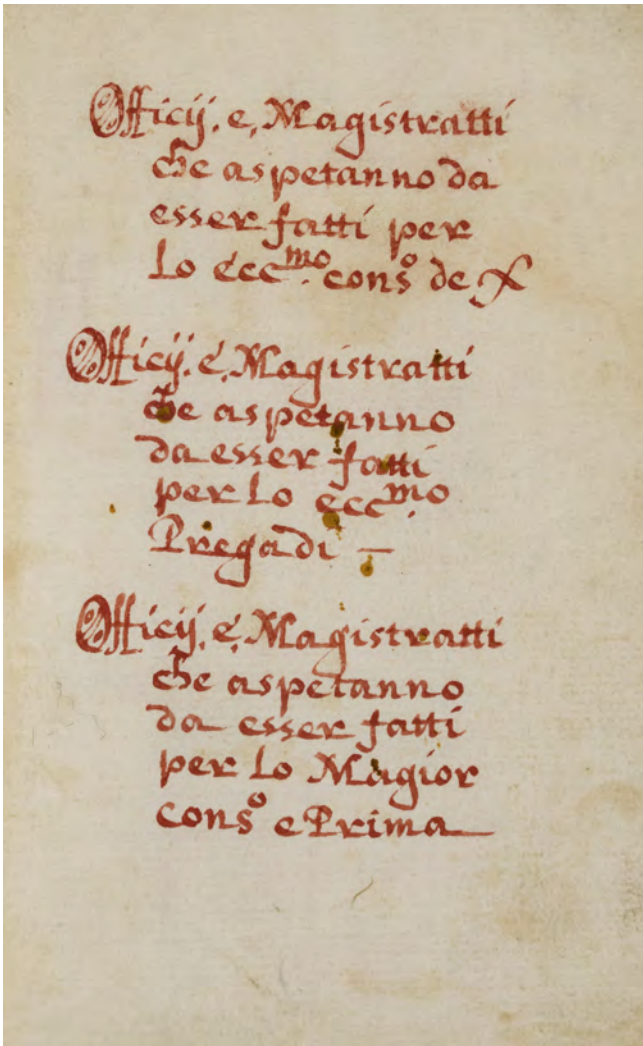 Officij. e, Magistratti
che aspetanno da
esser fatti per
Lo ecc.mo conso de X
Officij. é, Magistratti
che aspetanno
da esser fatti
per Lo ecc.mo
Pregadi —
Officij. é, Magistratti
che aspetanno
da esser fatti
per Lo Magior
conso e Prima